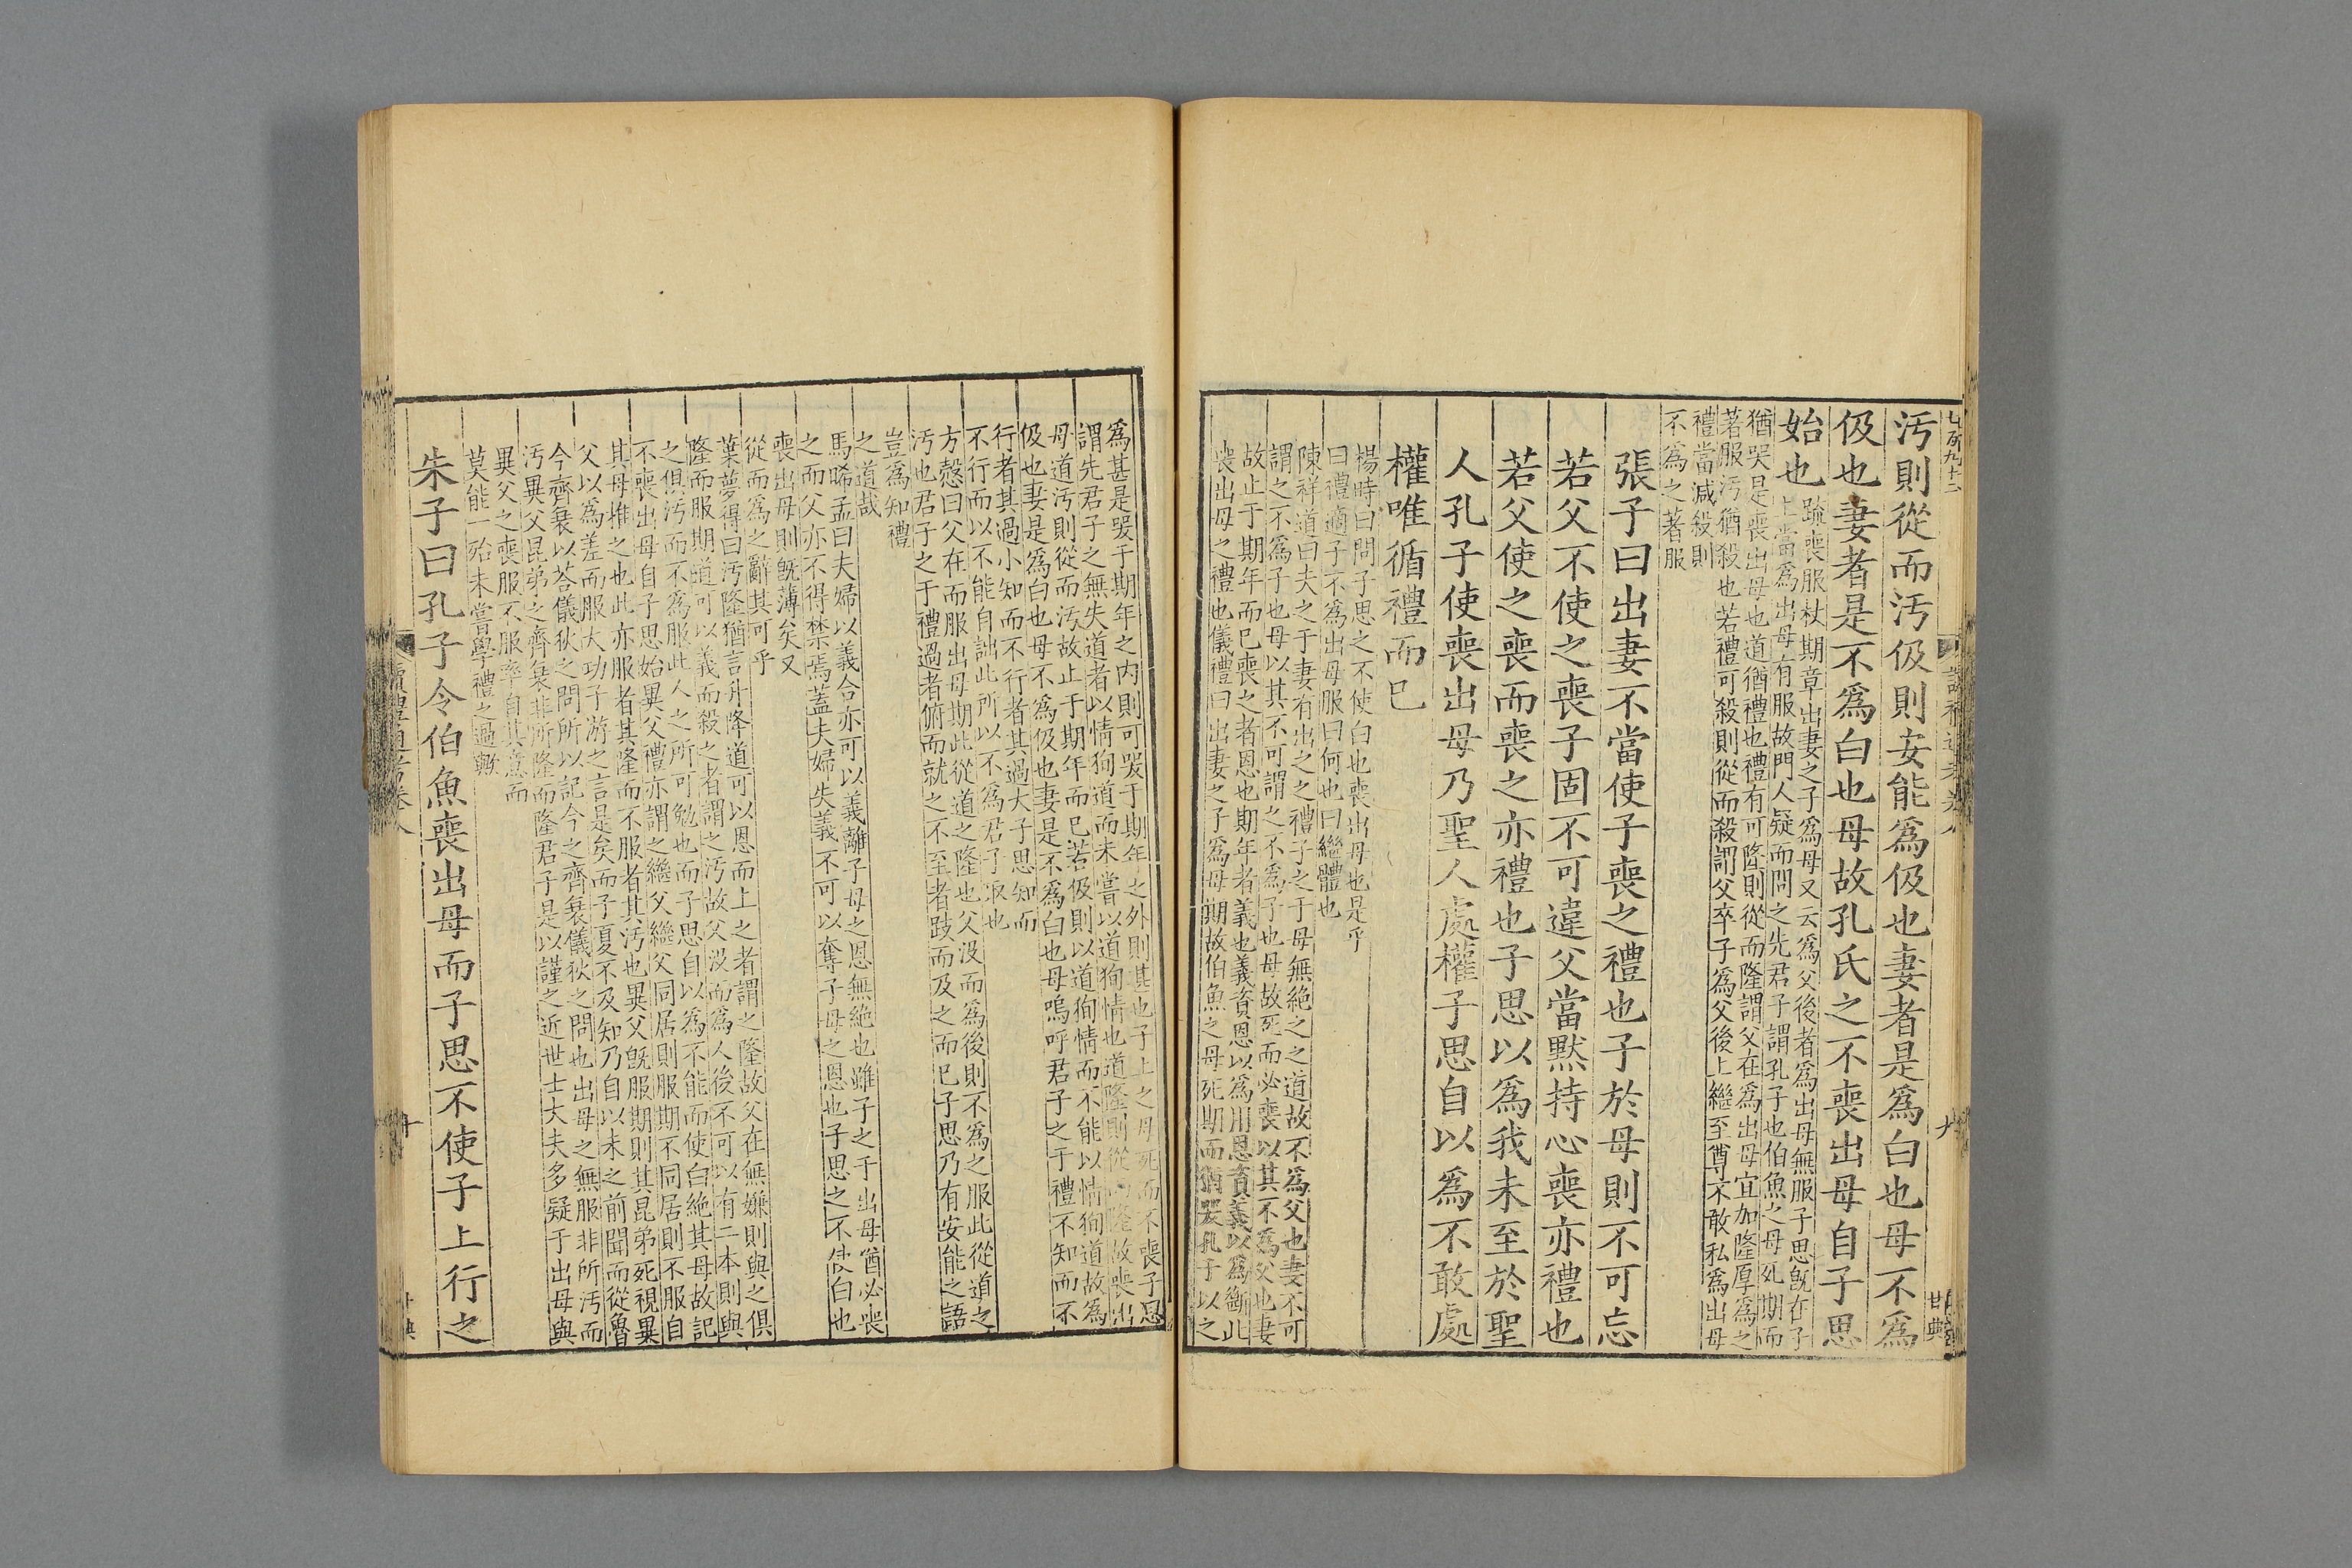 汚則從而汚伋則安能爲伋也妻者是爲白也母不爲
伋也妻者是不爲白也母故孔氏之不喪出母自子思
始也
疏喪服杖期章出妻之子爲母又云爲父後者爲出母無服子思旣在子
上當爲出母有服故門人疑而問之先君子謂孔子也伯魚之母死期而
猶哭是喪出母也道猶禮也禮有可隆則從而隆謂父在爲出母宜加隆厚爲之
著服汚猶殺也若禮可殺則從而殺謂父卒子爲父後上繼至尊不敢私爲出母
禮當減殺則
不爲之著服
張子曰出妻不當使子喪之禮也子於母則不可忘
若父不使之喪子固不可違父當默持心喪亦禮也
若父使之喪而喪之亦禮也子思以爲我未至於聖
人孔子使喪出母乃聖人處權子思自以爲不敢處
權唯循禮而已
楊時曰問子思之不使白也喪出母也是乎
曰禮適子不爲出母服曰何也曰繼體也
陳祥道曰夫之于妻有出之之禮子之于母無絶之之道故不爲父也妻不可
謂之不爲子也母以其不可謂之不爲子也母故死而必喪以其不爲父也妻
故止于期年而已喪之者恩也期年者義也義資恩以爲用恩資義以爲斷此
喪出母之禮也儀禮曰出妻之子爲母期故伯魚之母死期而猶哭孔子以之
爲甚是哭于期年之内則可哭于期年之外則甚也子上之母死而不喪子思
謂先君子之無失道者以情狥道而未嘗以道狥情也道隆則從而隆故喪出
母道汚則從而汚故止于期年而已若伋則以道狥情而不能以情狥道故爲
伋也妻是爲白也母不爲伋也妻是不爲白也母嗚呼君子之于禮不知而不
行者其過小知而不行者其過大子思知而
不行而以不能自詘此所以不爲君子取也
方慤曰父在而服出母期此從道之隆也父没而爲後則不爲之服此從道之
汚也君子之于禮過者俯而就之不至者跂而及之而已子思乃有安能之語
豈爲知禮
之道哉
馬晞孟曰夫婦以義合亦可以義離子母之恩無絶也雖子之于出母猶必喪
之而父亦不得禁焉蓋夫婦失義不可以奪子母之恩也子思之不使白也
喪出母則旣薄矣又
從而爲之辭其可乎
葉夢得曰汚隆猶言升降道可以恩而上之者謂之隆故父在無嫌則與之俱
隆而服期道可以義而殺之者謂之汚故父没而爲人後不可以有二本則與
之俱汚而不爲服此人之所可勉也而子思自以爲不能而使白絶其母故記
不喪出母自子思始異父禮亦謂之繼父繼父同居則服期不同居則不服自
其母推之也此亦服者其隆而不服者其汚也異父旣服期則其昆弟死視異
父以爲差而服大功子游之言是矣而子夏不及知乃自以未之前聞而從魯
今齊衰以荅儀狄之問所以記今之齊衰儀狄之問也出母之無服非所汚而
汚異父昆弟之齊衰非所隆而隆君子是以謹之近世士大夫多疑于出母與
異父之喪服不服率自其意而
莫能一殆未嘗學禮之過歟
朱子曰孔子令伯魚喪出母而子思不使子上行之